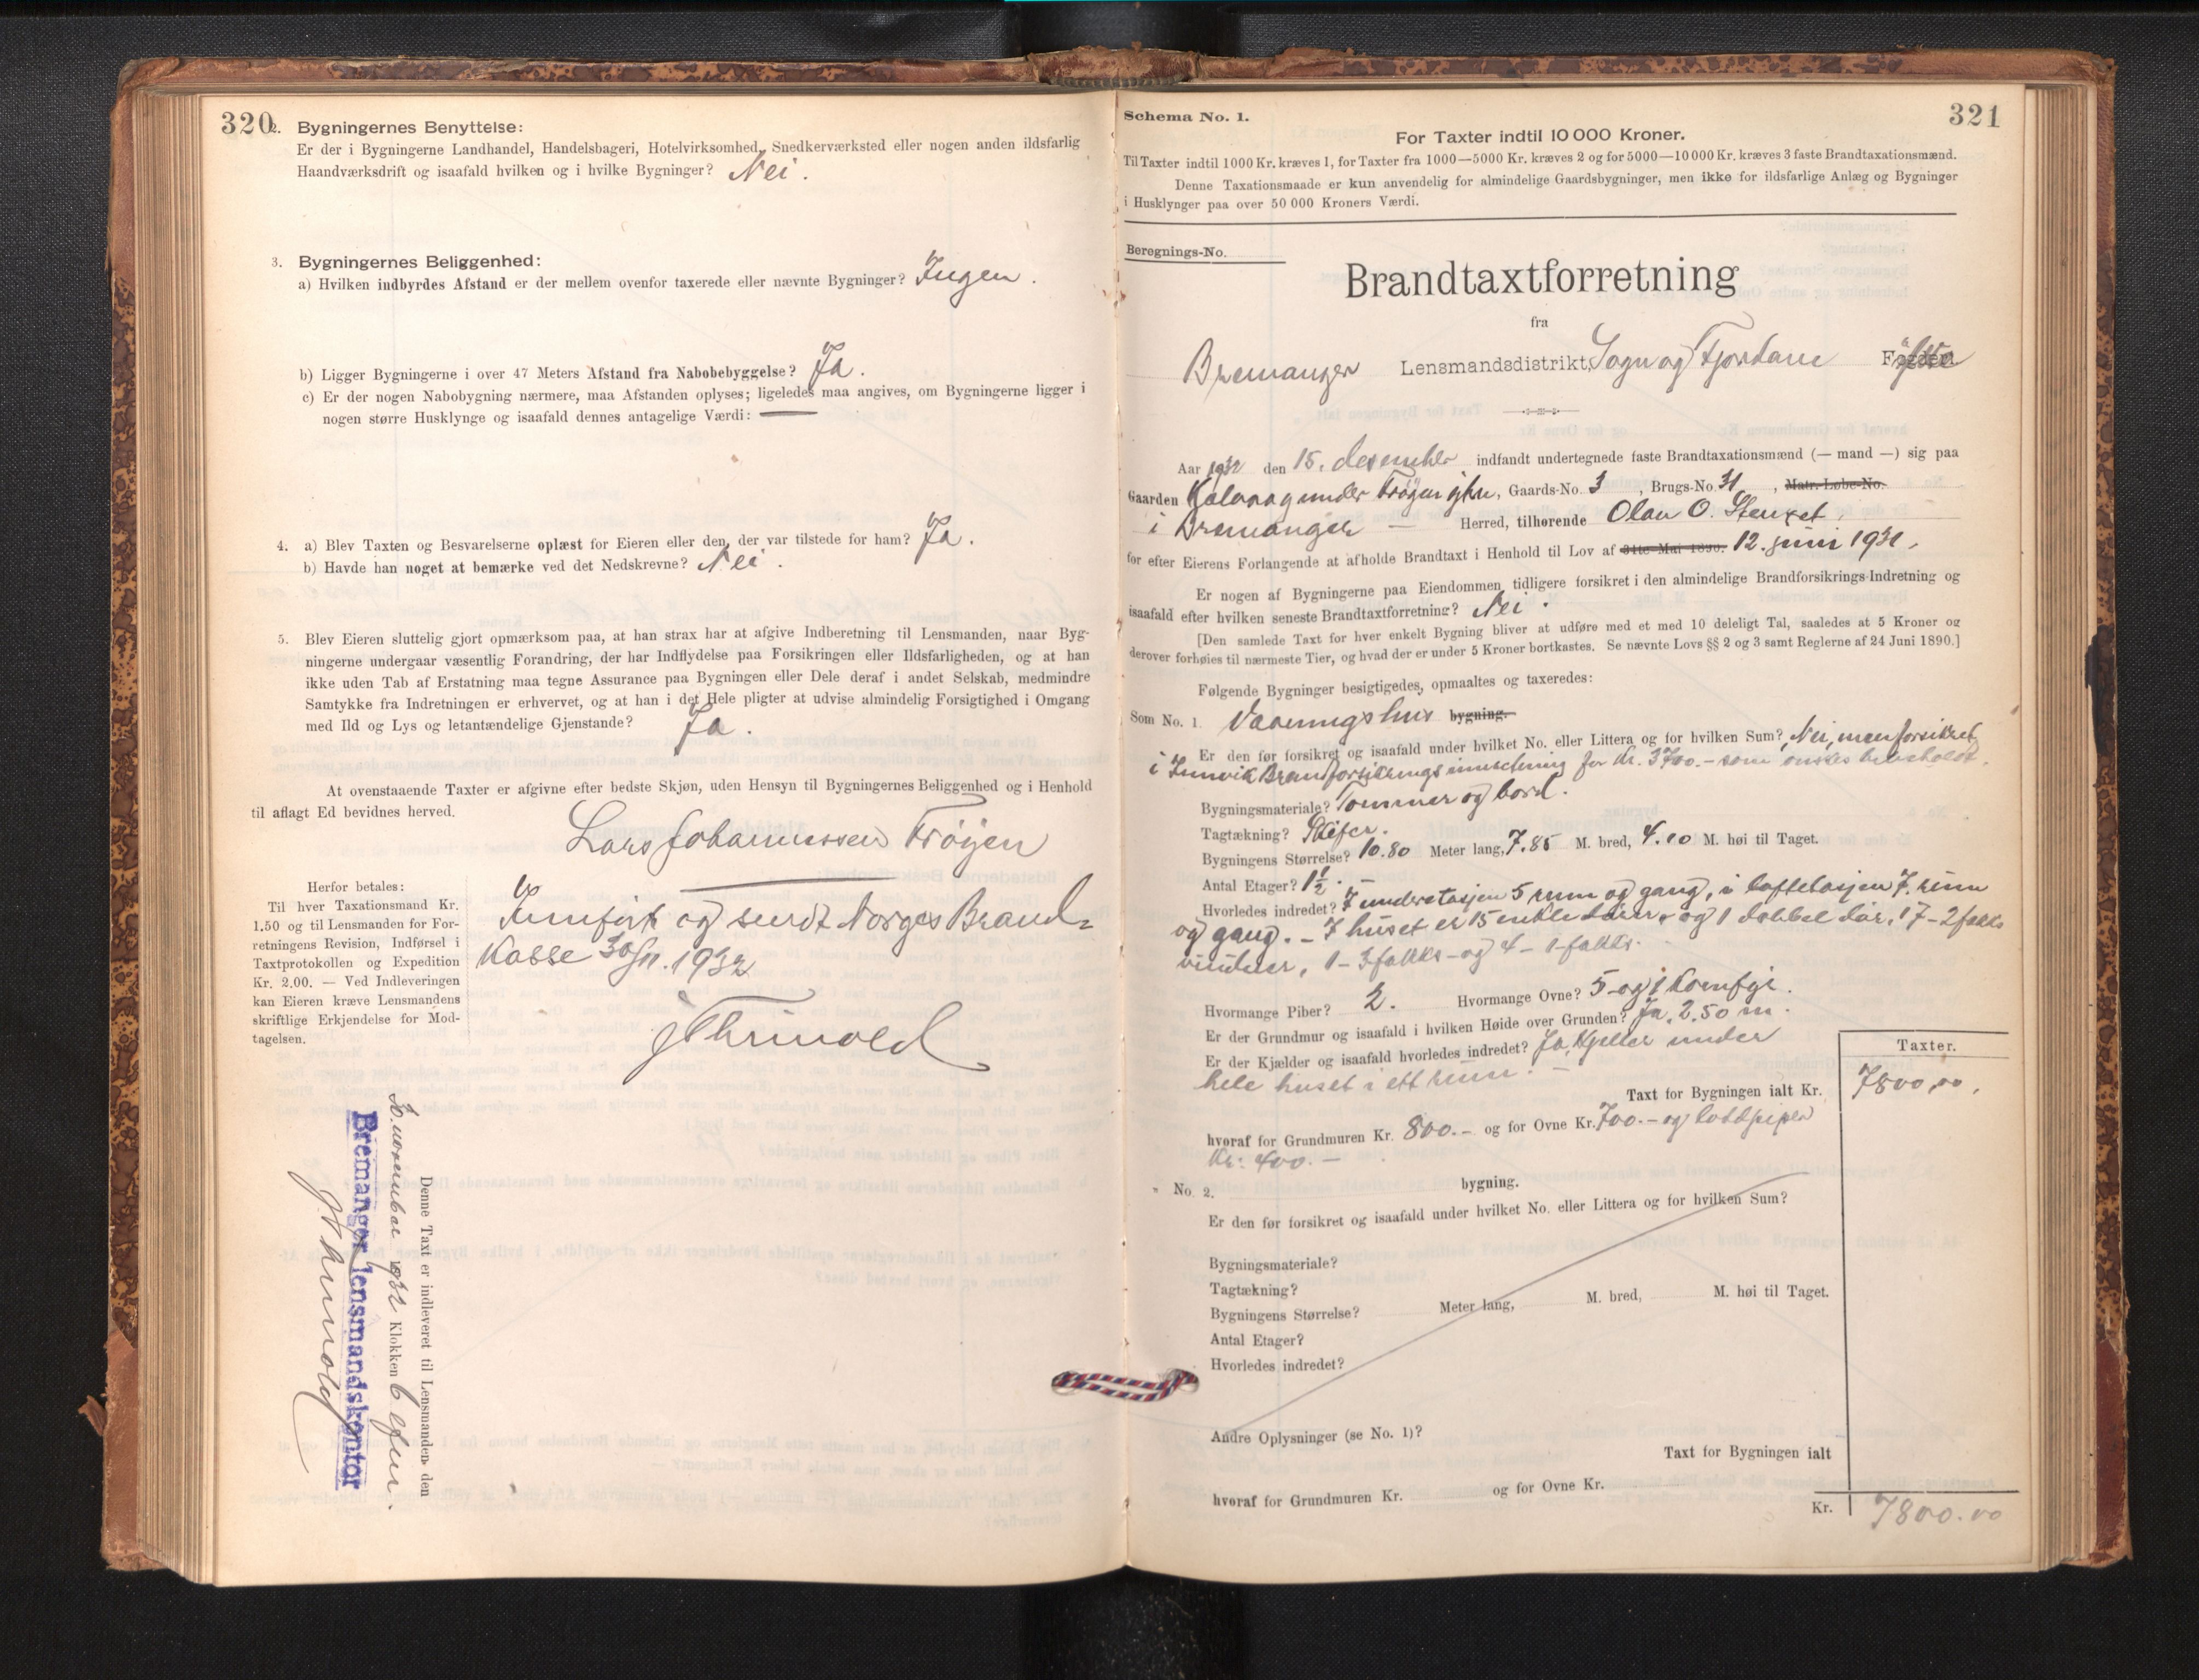 320
2. Bygningernes Benyttelse:
Er der i Bygningerne Landhandel, Handelsbageri, Hotelvirksomhed, Snedkerværksted eller nogen anden ildsfarlig
Haandværksdrift og isaafald hvilken og i hvilke Bygninger? Nei.
3. Bygningernes Beliggenhed:
a) Hvilken indbyrdes Afstand er der mellem ovenfor taxerede eller nævnte Bygninger? Ingen.
b) Ligger Bygningerne i over 47 Meters Afstand fra Nabobebyggelse? Ja.
c) Er der nogen Nabobygning nærmere, maa Afstanden oplyses; ligeledes maa angives, om Bygningerne ligger i
nogen større Husklynge og isaafald dennes antagelige Værdi: —
4. a) Blev Taxten og Besvarelserne oplæst for Eieren eller den, der var tilstede for ham? Ja.
b) Havde han noget at bemærke ved det Nedskrevne? Nei.
5. Blev Eieren sluttelig gjort opmærksom paa, at han strax har at afgive Indberetning til Lensmanden, naar Byg-
ningerne undergaar væsentlig Forandring, der har Indflydelse paa Forsikringen eller Ildsfarligheden, og at han
ikke uden Tab af Erstatning maa tegne Assurance paa Bygningen eller Dele deraf i andet Selskab, medmindre
Samtykke fra Indretningen er erhvervet, og at han i det Hele pligter at udvise almindelig Forsigtighed i Omgang
med Ild og Lys og letantændelige Gjenstande? Ja.
At ovenstaaende Taxter er afgivne efter bedste Skjøn, uden Hensyn til Bygningernes Beliggenhed og i Henhold
til aflagt Ed bevidnes herved.
Lars Johannessen Frøyen
Herfor betales:
Til hver Taxationsmand Kr.
1.50 og til Lensmanden for For-
retningens Revision, Indførsel i
Taxtprotokollen og Expedition
Kr. 2.00. — Ved Indleveringen
kan Eieren kræve Lensmandens
skriftlige Erkjendelse for Mod-
tagelsen.
Innført og sendt Norges Brand-
kasse 30/11. 1932
Denne Taxt er indleveret til Lensmanden den
30. november 1932 Klokken 6 efm.
Bremanger lensmandskontor
321
Schema No. 1.
For Taxter indtil 10 000 Kroner.
Til Taxter indtil 1000 Kr. kræves 1, for Taxter fra 1000—5000 Kr. kræves 2 og for 5000—10000 Kr. kræves 3 faste Brandtaxationsmænd.
Denne Taxationsmaade er kun anvendelig for almindelige Gaardsbygninger, men ikke for ildsfarlige Anlæg og Bygninger
i Husklynger paa over 50 000 Kroners Værdi.
Beregnings-No.
Brandtaxtforretning
fra
Bremanger Lensmandsdistrikt, Sogn og Fjordane
Aar 1932 den 15. desember indfandt undertegnede faste Brandtaxationsmænd (— mand —) sig paa
Gaarden Kalvaag under Frøyen ytre, Gaards-No. 3, Brugs-No. 31, Matr.-Løbe-No.
i Bremanger — Herred, tilhørende Olav O.
for efter Eierens Forlangende at afholde Brandtaxt i Henhold til Lov af 31te Mai 1890. 12. juni 1931.
Er nogen af Bygningerne paa Eiendommen tidligere forsikret i den almindelige Brandforsikrings-Indretning og
isaafald efter hvilken seneste Brandtaxtforretning? Nei.
[Den samlede Taxt for hver enkelt Bygning bliver at udføre med et med 10 deleligt Tal, saaledes at 5 Kroner og
derover forhøies til nærmeste Tier, og hvad der er under 5 Kroner bortkastes. Se nævnte Lovs §§ 2 og 3 samt Reglerne af 24 Juni 1890.]
Følgende Bygninger besigtigedes, opmaaltes og taxeredes:
Som No. 1. Vaaningshus bygning.
Er den før forsikret og isaafald under hvilket No. eller Littera og for hvilken Sum? Nei, men forsikret
i Innvik Brandforsikringsinnretning for Kr. 3700.- som ønskes beholdt.
Bygningsmateriale? Tømmer og bord.
Tagtækning? Skifer.
Bygningens Størrelse? 10.80 Meter lang, 7.85 M. bred, 4.10 M. høi til Taget.
Antal Etager? 1½.
Hvorledes indredet? I underetasjen 5 rum og gang, i loftetasjen 7 rum
og gang. - I huset er 15 enkle dører og 1 dobbel dør, 17 - 2 fakks
vinduer, 1 - 3 fakks - og 4 - 1 fakks.
Hvormange Piber? 2. Hvormange Ovne? 5 og 1 komfyr.
Er der Grundmur og isaafald i hvilken Høide over Grunden? Ja, 2.50 m.
Er der Kjælder og isaafald hvorledes indredet? Ja, kjeller under
hele huset i ett rum. —
Taxter.
Taxt for Bygningen ialt Kr. 7800,00.
hvoraf for Grundmuren Kr. 800.- og for Ovne Kr. 700.- og
Kr. 400.—
No. 2. bygning.
Er den før forsikret og isaafald under hvilket No. eller Littera og for hvilken Sum?
Bygningsmateriale?
Tagtækning?
Bygningens Størrelse? Meter lang, M. bred, M. høi til Taget.
Antal Etager?
Hvorledes indredet?
Andre Oplysninger (se No. 1)?
Taxt for Bygningen ialt
hvoraf for Grundmuren Kr. og for Ovne Kr.
Kr. 7800.00